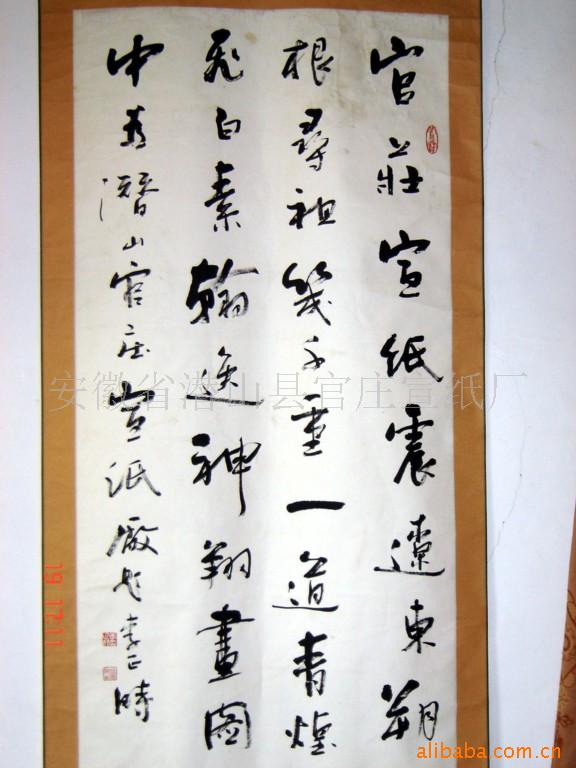 官莊宣紙震遼東朔
根尋祖幾千重一道青煙
飛白素翰逸神翔畫圖
中為潛山官庄宣紙廠 李正時
安徽省潜山县官庄宣纸厂
19 17:11
alibaba.com.cn